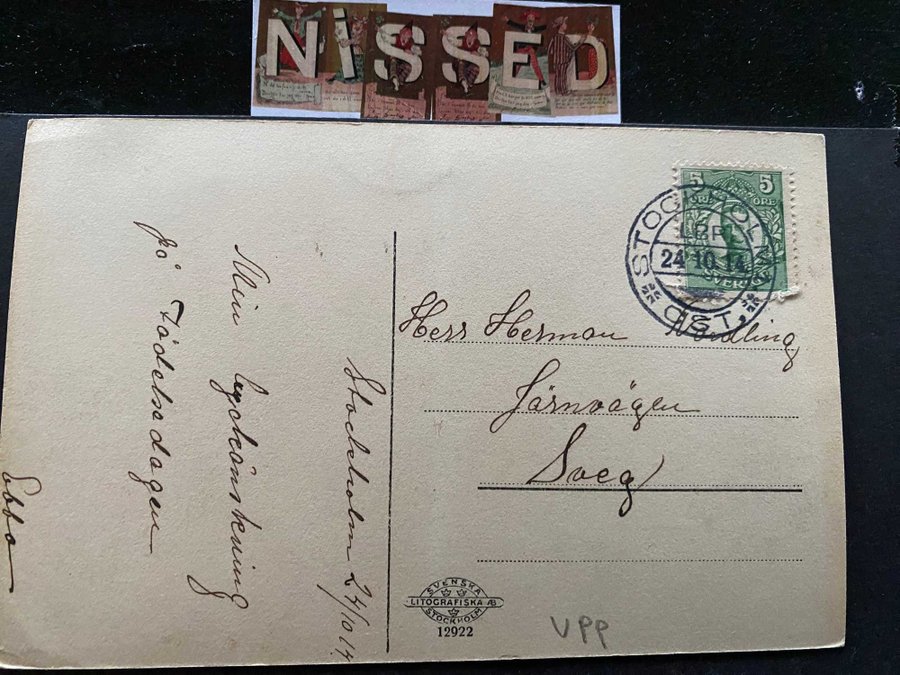 NISSED
5 5
ÖRE ÖRE
SVERIGE
STOCKHOLM
LBR
24.10.14
ÖST.
Herr Herman Nordling
Järnvägen
Sveg
Stockholm 24/10 14
Min lyckönskning
på födelsedagen
Ebba
SVENSKA
LITOGRAFISKA AB
STOCKHOLM
12922
VPP